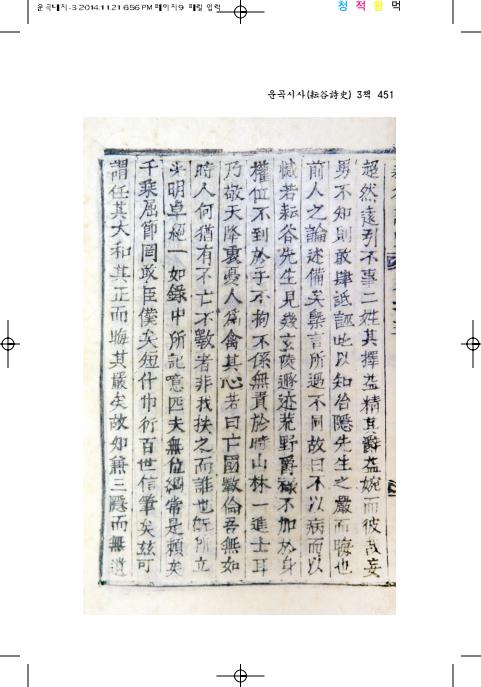 운곡시사-3 2014.11.21 6:56 PM 페이지9
청 적 황 먹
운곡시사(耘谷詩史) 3책 451
超然遠引不事二姓其擇益精其爵益婉而彼或妄
男不知則敢肆詆誣此以知冶隱先生之嚴而晦也
前人之論述備矣槩言所遇不同故曰不以病而以
憾若耘谷先生見幾玄陵遯迹荒野爵祿不加於身
權位不到於手不拘不係無責於時山林一進士耳
乃敬天降衷憂人爲禽其心若曰亡國斁倫吾無如
時人何猶有不亡不斁者非我扶之而誰也 所立
光明卓絕一如錄中所記噫匹夫無位綱常是賴矣
千乘屈節罔敢臣僕矣短什巾衍百世信筆矣玆可
謂任其大和其正而晦其嚴矣故如兼三隱而無遺